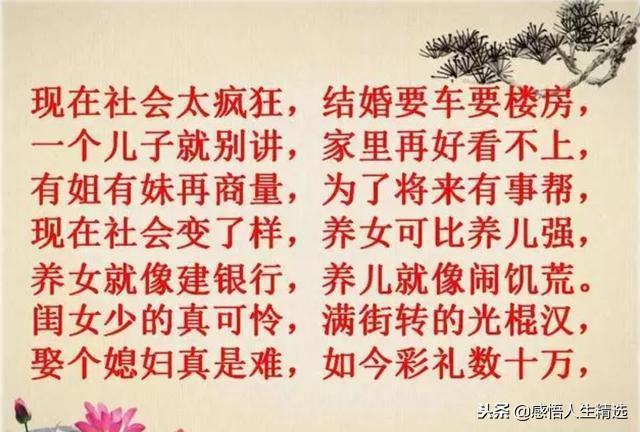 现在社会太疯狂，结婚要车要楼房，
一个儿子就别讲，家里再好看不上，
有姐有妹再商量，为了将来有事帮，
现在社会变了样，养女可比养儿强，
养女就像建银行，养儿就像闹饥荒。
闺女少的真可怜，满街转的光棍汉，
娶个媳妇真是难，如今彩礼数十万，
头条@感悟人生精选